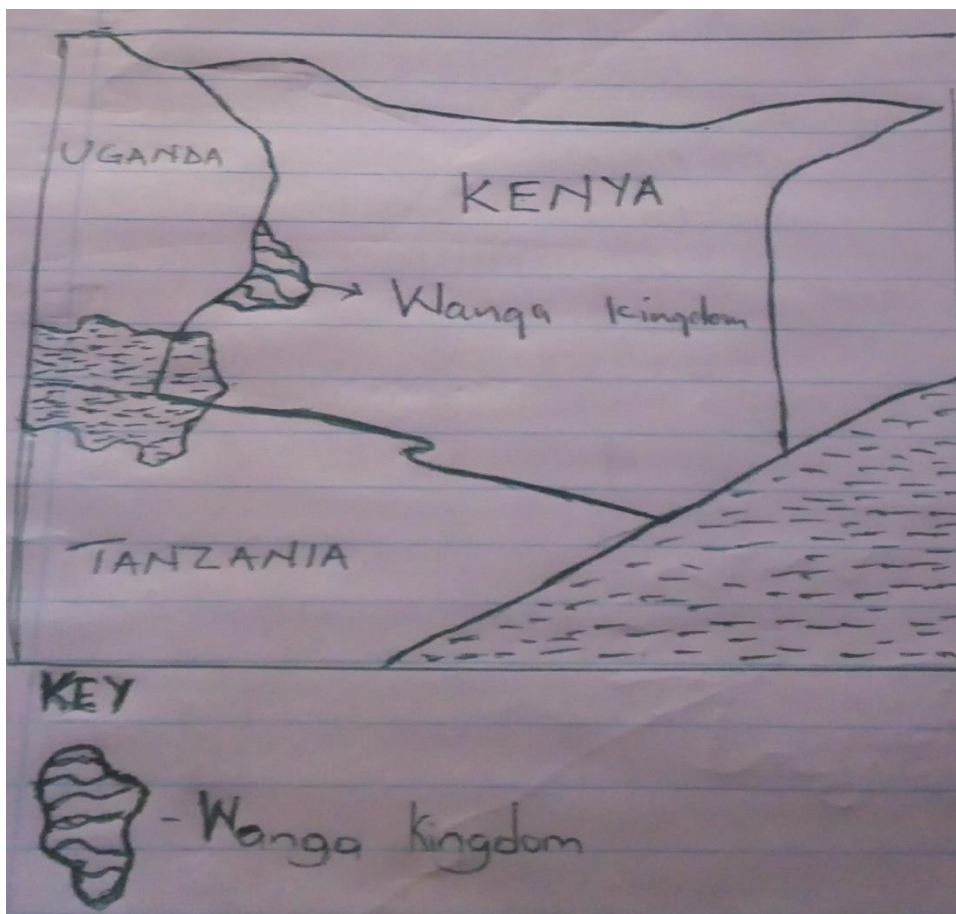 UGANDA
KENYA
Wanga Kingdom
TANZANIA
KEY
- Wanga Kingdom